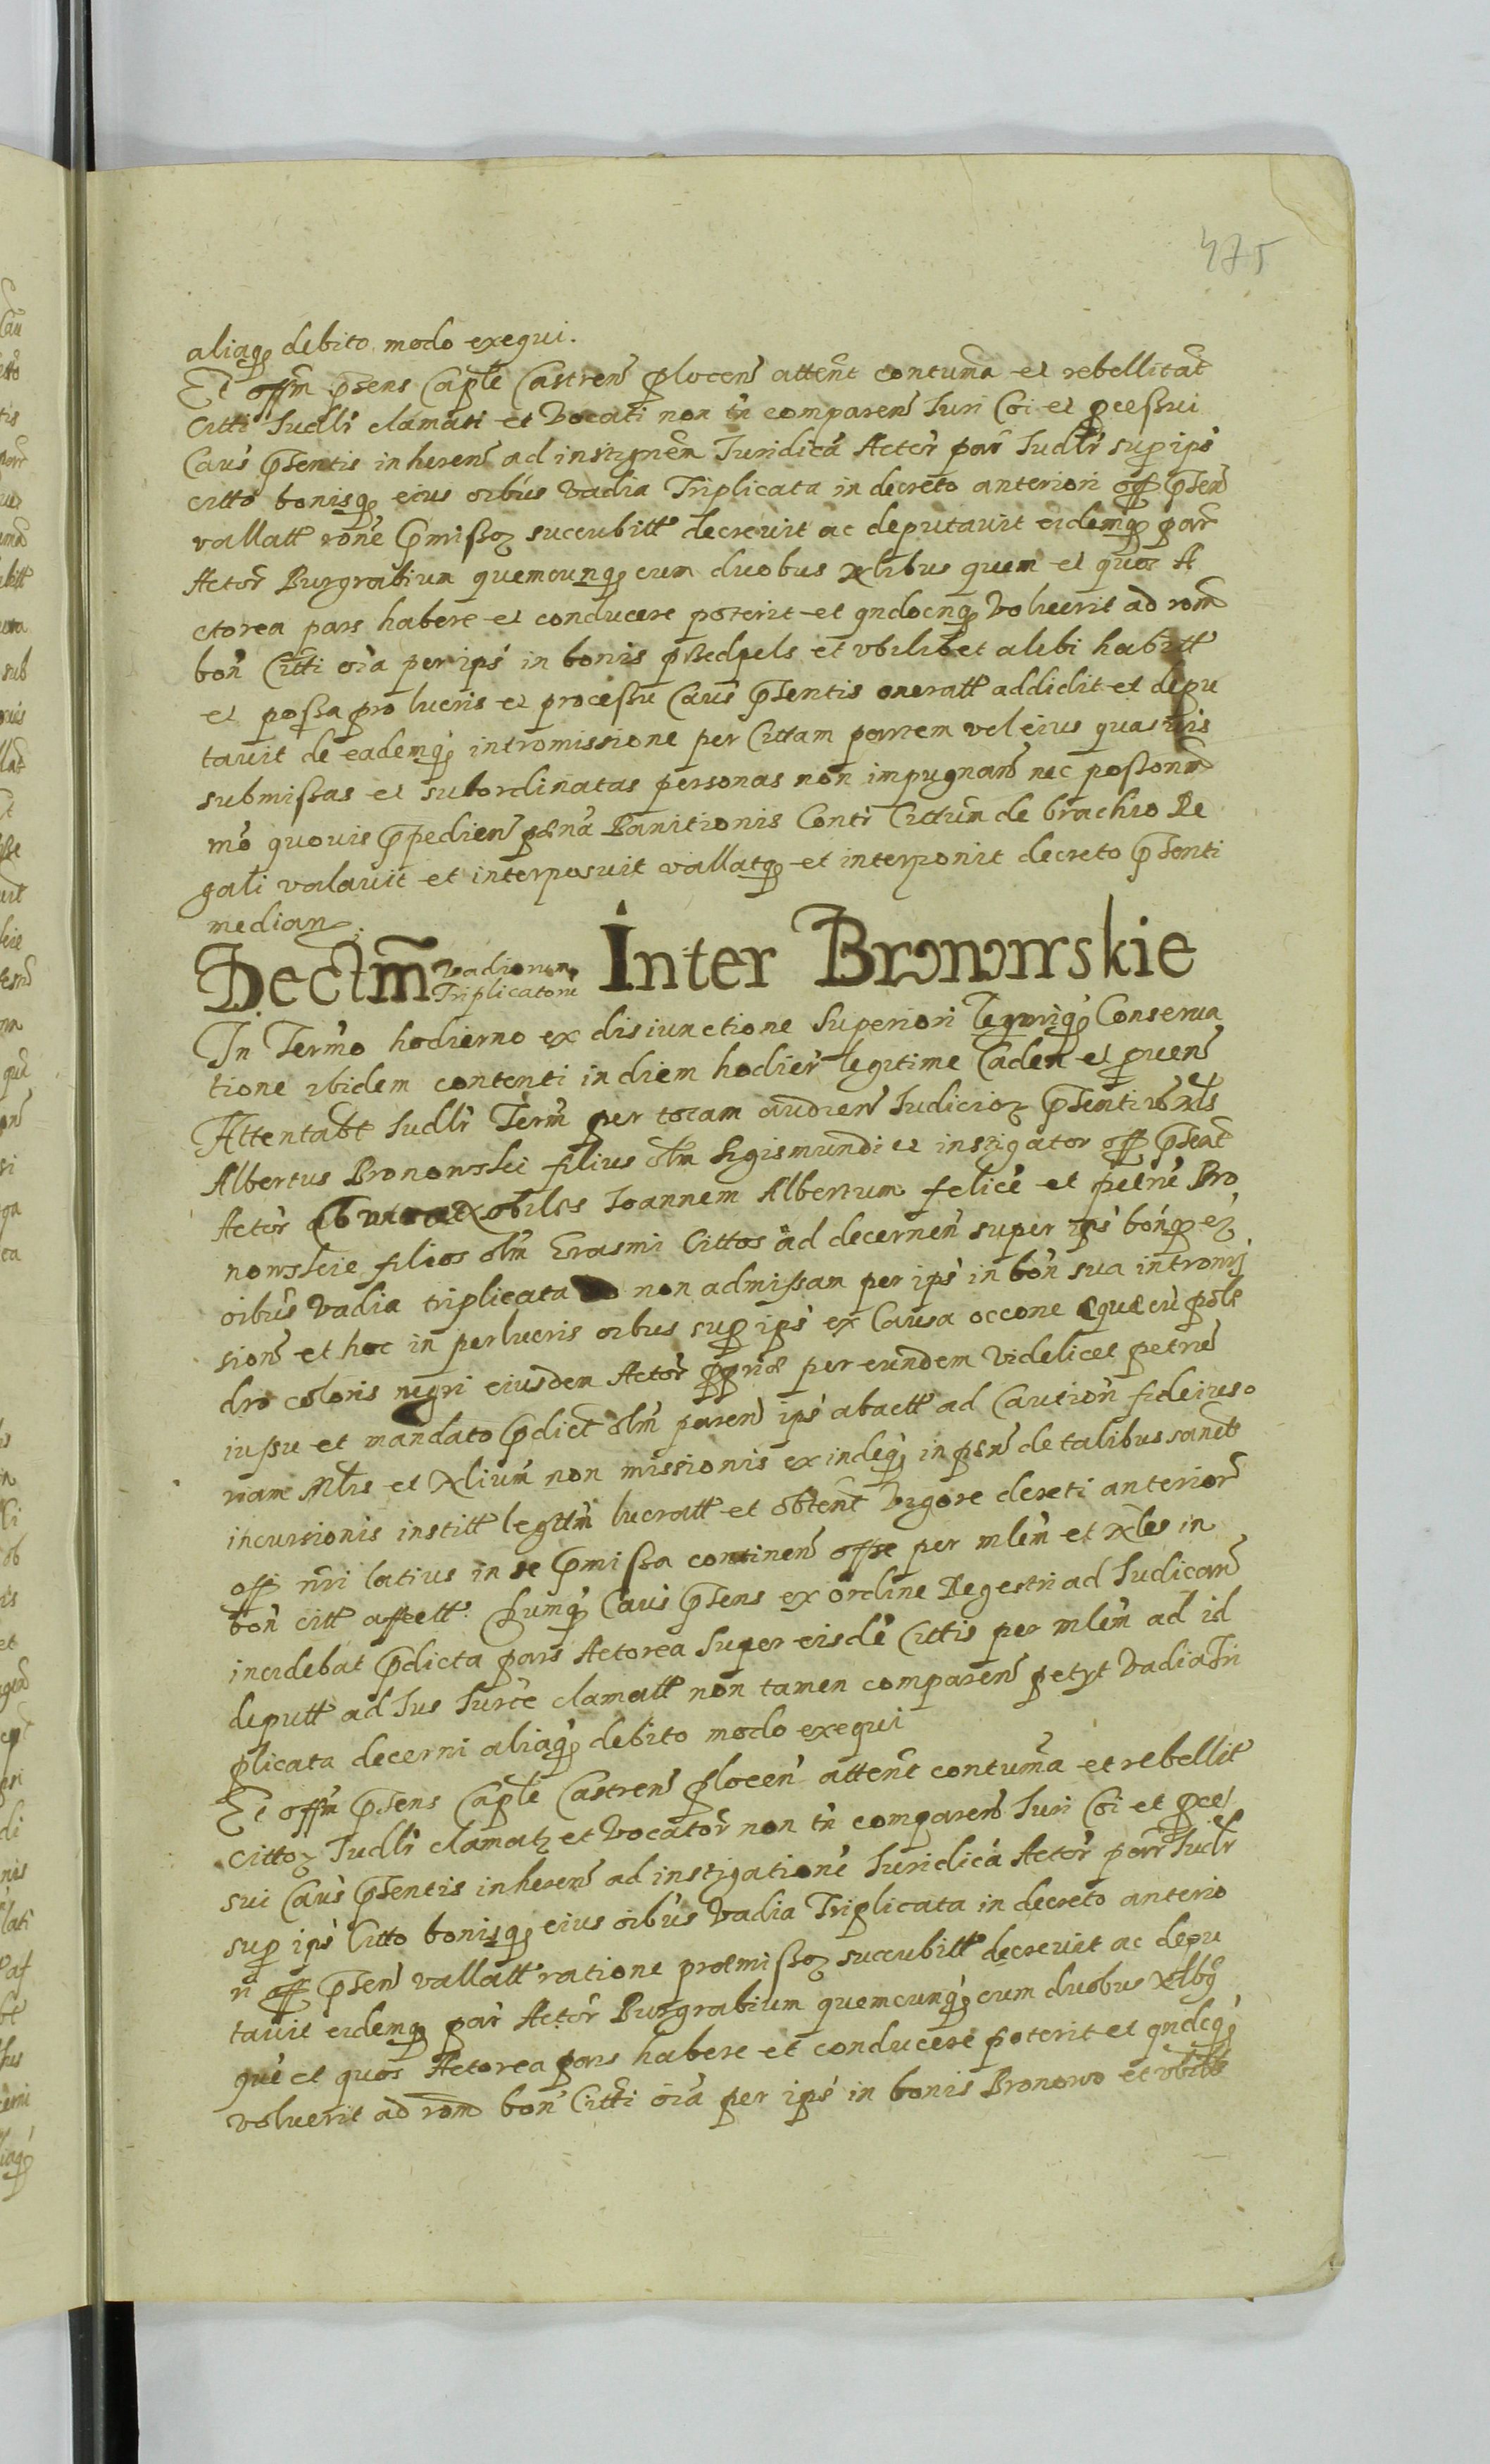 475
aliaqȝ debito modo exequi.
Et offm pñsens Caplē Castreñ plocen attent contuma et rebellitat
Citti Iudlr clamati et Vocati non tn compareñ Iuri Coi et pcessui
Caus pñsentis inhereñ ad instignem Iuridica Actor par Iudlr sup ips
citto bonisqȝ eius oibus Vadia Triplicata in decreto anteriori off pñseñ
vallatt rone pmissoȝ succubitt decrevit ac deputavit eidemqȝ par
Actor Burgrabium quemcunqȝ cum duobus xlibus quem et quos A
ctorea pars habere et conducere poterit et qndocnqȝ Voluerit ad rom
bon Citti oia per ips in bonis et vbilibet alibi habitt
et possa pro lucris et processu Caus pñsentis oneratt addidit et depu
tavit de eademqȝ intromissione per Cittam partem vel eius quasvis
submissas et subordinatas personas non impugnañ nec possonm
mo quovis pпedieñ pœna Banitionis Contr Cittum de brachio Re
gali valavit et interposuit vallatqȝ et interponit decreto pñsenti
median.
Dectm Vadiorum Triplicatorū Inter Bronowskie
In Termo hodierno ex disiunctione Superiori Conserva
tione ibidem contenti in diem hodier legitime Caden et pueñ
Attentabt Iudlr Term per totam audieñ Iudicioȝ pñsentiu nls
Albertus Bronowski filius olm Sigismundi et instigator off pñseñt
Actor nobiles Ioannem Albertum felicē et petrū Bro
nowskie filios olm Erasmi Cittos ad decerneñ super ips bonqȝ eȝ
oibus Vadia triplicata non admissam per ips in bon sua intromis
sioñ et hoc in perlucris oibus sup ips ex Causa occone
dro coloris nigri eiusdem Actor ppriæ per eundem Videlicet petrū
iussu et mandato pdict olm pareñ ips abactt ad Caution fideiusso
riam Mlis et Xlium non missionis ex indeqȝ in pœñ de talibus sancit
incursionis instītt legittm lucratt et obtent Vigore decreti anterior
off nri latius in se pmissa contineñ offse per mlem et xles in
bon citt affectt. Cumqȝ Caus pñsens ex ordine Regestri ad Iudicañ
incidebat pdicta pars Actorea Super eisdē Cittis per mlem ad id
deputt ad Ius Iurce clamatt non tamen compareñ petyt Vadia Tri
plicata decerni aliaqȝ debito modo exequi
Et offm pñsens Caple Castreñ plocen attent contuma et rebellit
cittoȝ Iudlr clamatȝ et Vocator non tn compareñ Iuri Coi et pces
sui Caus pñsentis inhereñ ad instigationē Iuridica Actor par Iudlr
sup ips Citto bonisqȝ eius oibus Vadia Triplicata in decreto anterio
ri off pñseñ vallatt ratione præmissoȝ succubitt decrevit ac depu
tavit eidemqȝ par Actor Burgrabium quemcunqȝ cum duobus xlibȝ
quē et quos Actorea pars habere et conducere poterit et qndcqȝ
voluerit ad rom bon Citti oia per ips in bonis Bronowo et vbilib